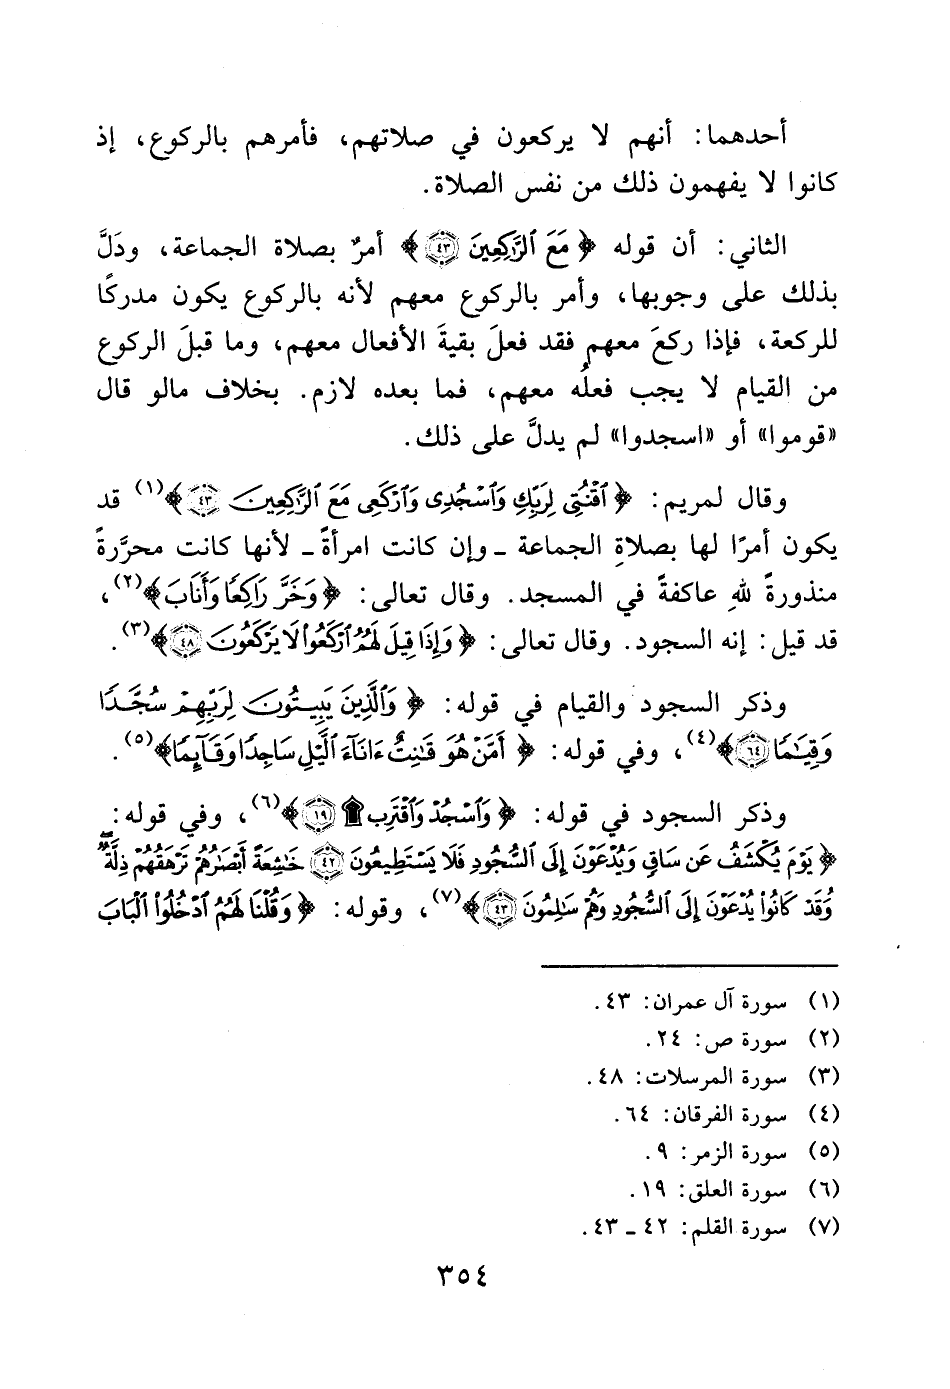 أحدهما: أنهم لا يركعون في صلاتهم، فأمرهم بالركوع، إذ
كانوا لا يفهمون ذلك من نفس الصلاة.
الثاني: أن قوله ﴿ مَعَ ٱلرَّٰكِعِينَ ٤٣ ﴾ أمرٌ بصلاة الجماعة، ودَلَّ
بذلك على وجوبها، وأمر بالركوع معهم لأنه بالركوع يكون مدركًا
للركعة، فإذا ركعَ معهم فقد فعلَ بقيةَ الأفعال معهم، وما قبلَ الركوع
من القيام لا يجب فعلُه معهم، فما بعده لازم. بخلاف مالو قال
«قوموا» أو «اسجدوا» لم يدلَّ على ذلك.
وقال لمريم: ﴿ ٱقْنُتِى لِرَبِّكِ وَٱسْجُدِى وَٱرْكَعِى مَعَ ٱلرَّٰكِعِينَ ٤٣ ﴾(١) قد
يكون أمرًا لها بصلاةِ الجماعة ـ وإن كانت امرأةً ـ لأنها كانت محرَّرةً
منذورةً للهِ عاكفةً في المسجد. وقال تعالى: ﴿ وَخَرَّ رَاكِعًا وَأَنَابَ ﴾(٢)،
قد قيل: إنه السجود. وقال تعالى: ﴿ وَإِذَا قِيلَ لَهُمُ ٱرْكَعُوا۟ لَا يَرْكَعُونَ ٤٨ ﴾(٣).
وذكر السجود والقيام في قوله: ﴿ وَٱلَّذِينَ يَبِيتُونَ لِرَبِّهِمْ سُجَّدًا
وَقِيَٰمًا ٦٤ ﴾(٤)، وفي قوله: ﴿ أَمَّنْ هُوَ قَٰنِتٌ ءَانَآءَ ٱلَّيْلِ سَاجِدًا وَقَآئِمًا ﴾(٥).
وذكر السجود في قوله: ﴿ وَٱسْجُدْ وَٱقْتَرِب ۩ ١٩ ﴾(٦)، وفي قوله:
﴿ يَوْمَ يُكْشَفُ عَن سَاقٍ وَيُدْعَوْنَ إِلَى ٱلسُّجُودِ فَلَا يَسْتَطِيعُونَ ٤٢ خَٰشِعَةً أَبْصَٰرُهُمْ تَرْهَقُهُمْ ذِلَّةٌ
وَقَدْ كَانُوا۟ يُدْعَوْنَ إِلَى ٱلسُّجُودِ وَهُمْ سَٰلِمُونَ ٤٣ ﴾(٧)، وقوله: ﴿ وَقُلْنَا لَهُمُ ٱدْخُلُوا۟ ٱلْبَابَ
(١) سورة آل عمران: ٤٣.
(٢) سورة ص: ٢٤.
(٣) سورة المرسلات: ٤٨.
(٤) سورة الفرقان: ٦٤.
(٥) سورة الزمر: ٩.
(٦) سورة العلق: ١٩.
(٧) سورة القلم: ٤٢ ـ ٤٣.
٣٥٤